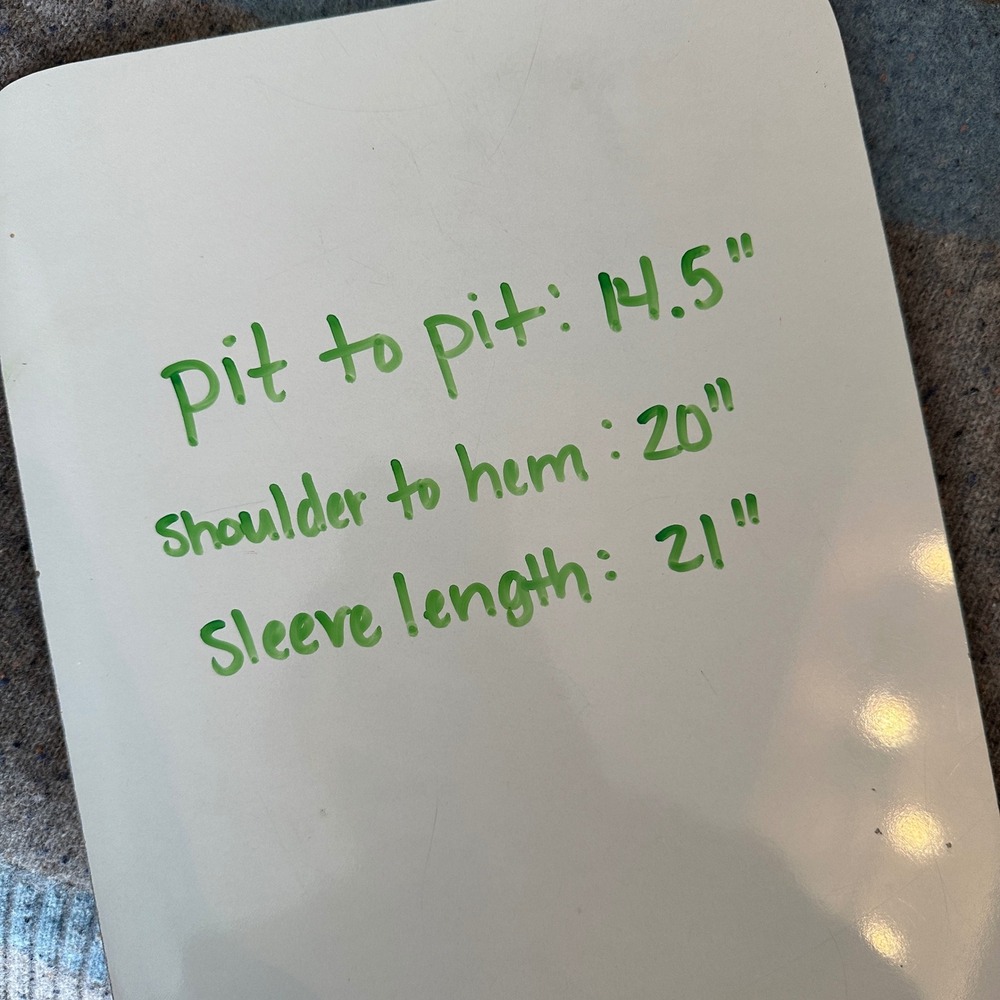 pit to pit: 14.5"
shoulder to hem: 20"
Sleeve length: 21"